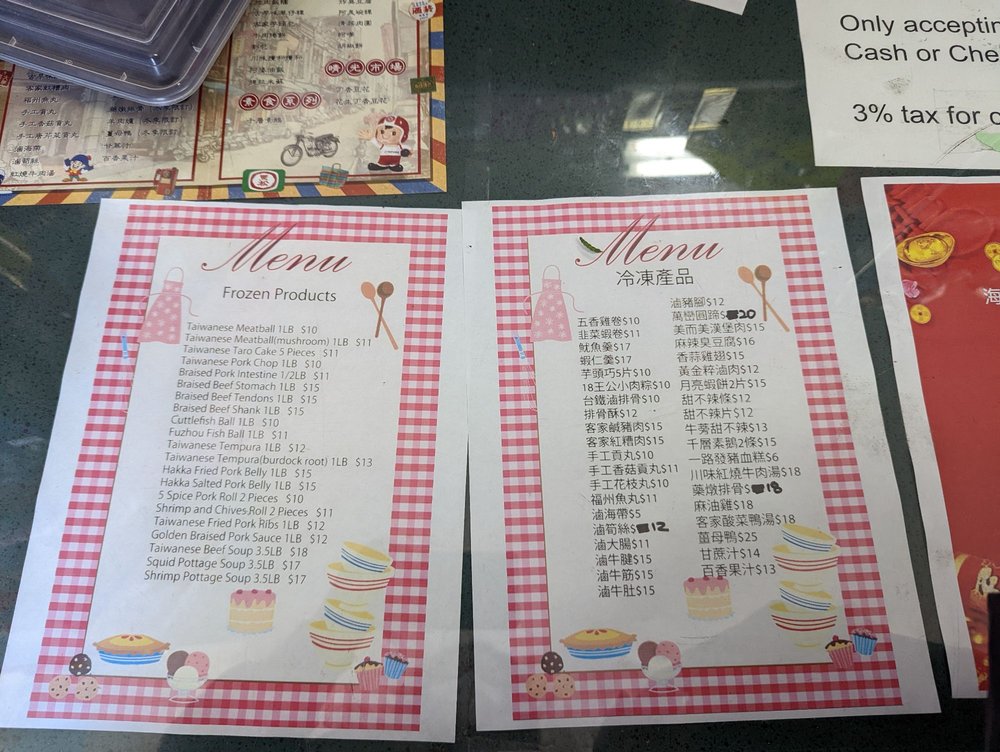 手工貢丸
手工香菇貢丸
手工唐芹菜貢丸
滷海帶
滷筍絲
紅燒牛肉湯
百香果汁
素食系列
晴光市場
胡椒餅
Only acceptin
Cash or Che
3% tax for c
Menu
Frozen Products
Taiwanese Meatball 1LB $10
Taiwanese Meatball(mushroom) 1LB $11
Taiwanese Taro Cake 5 Pieces $11
Taiwanese Pork Chop 1LB $10
Braised Pork Intestine 1/2LB $11
Braised Beef Stomach 1LB $15
Braised Beef Tendons 1LB $15
Braised Beef Shank 1LB $15
Cuttlefish Ball 1LB $10
Fuzhou Fish Ball 1LB $11
Taiwanese Tempura 1LB $12
Taiwanese Tempura(burdock root) 1LB $13
Hakka Fried Pork Belly 1LB $15
Hakka Salted Pork Belly 1LB $15
5 Spice Pork Roll 2 Pieces $10
Shrimp and Chives Roll 2 Pieces $11
Taiwanese Fried Pork Ribs 1LB $12
Golden Braised Pork Sauce 1LB $12
Taiwanese Beef Soup 3.5LB $18
Squid Pottage Soup 3.5LB $17
Shrimp Pottage Soup 3.5LB $17
Menu
冷凍產品
五香雞卷$10
韭菜蝦卷$11
魷魚羹$17
蝦仁羹$17
芋頭巧5片$10
18王公小肉粽$10
台鐵滷排骨$10
排骨酥$12
客家鹹豬肉$15
客家紅糟肉$15
手工貢丸$10
手工香菇貢丸$11
手工花枝丸$10
福州魚丸$11
滷海帶$5
滷筍絲$12
滷大腸$11
滷牛腱$15
滷牛筋$15
滷牛肚$15
滷豬腳$12
萬巒圓蹄$20
美而美漢堡肉$15
麻辣臭豆腐$16
香蒜雞翅$15
黃金粹滷肉$12
月亮蝦餅2片$15
甜不辣條$12
甜不辣片$12
牛蒡甜不辣$13
千層素鵝2條$15
一路發豬血糕$6
川味紅燒牛肉湯$18
藥燉排骨$18
麻油雞$18
客家酸菜鴨湯$18
薑母鴨$25
甘蔗汁$14
百香果汁$13
海